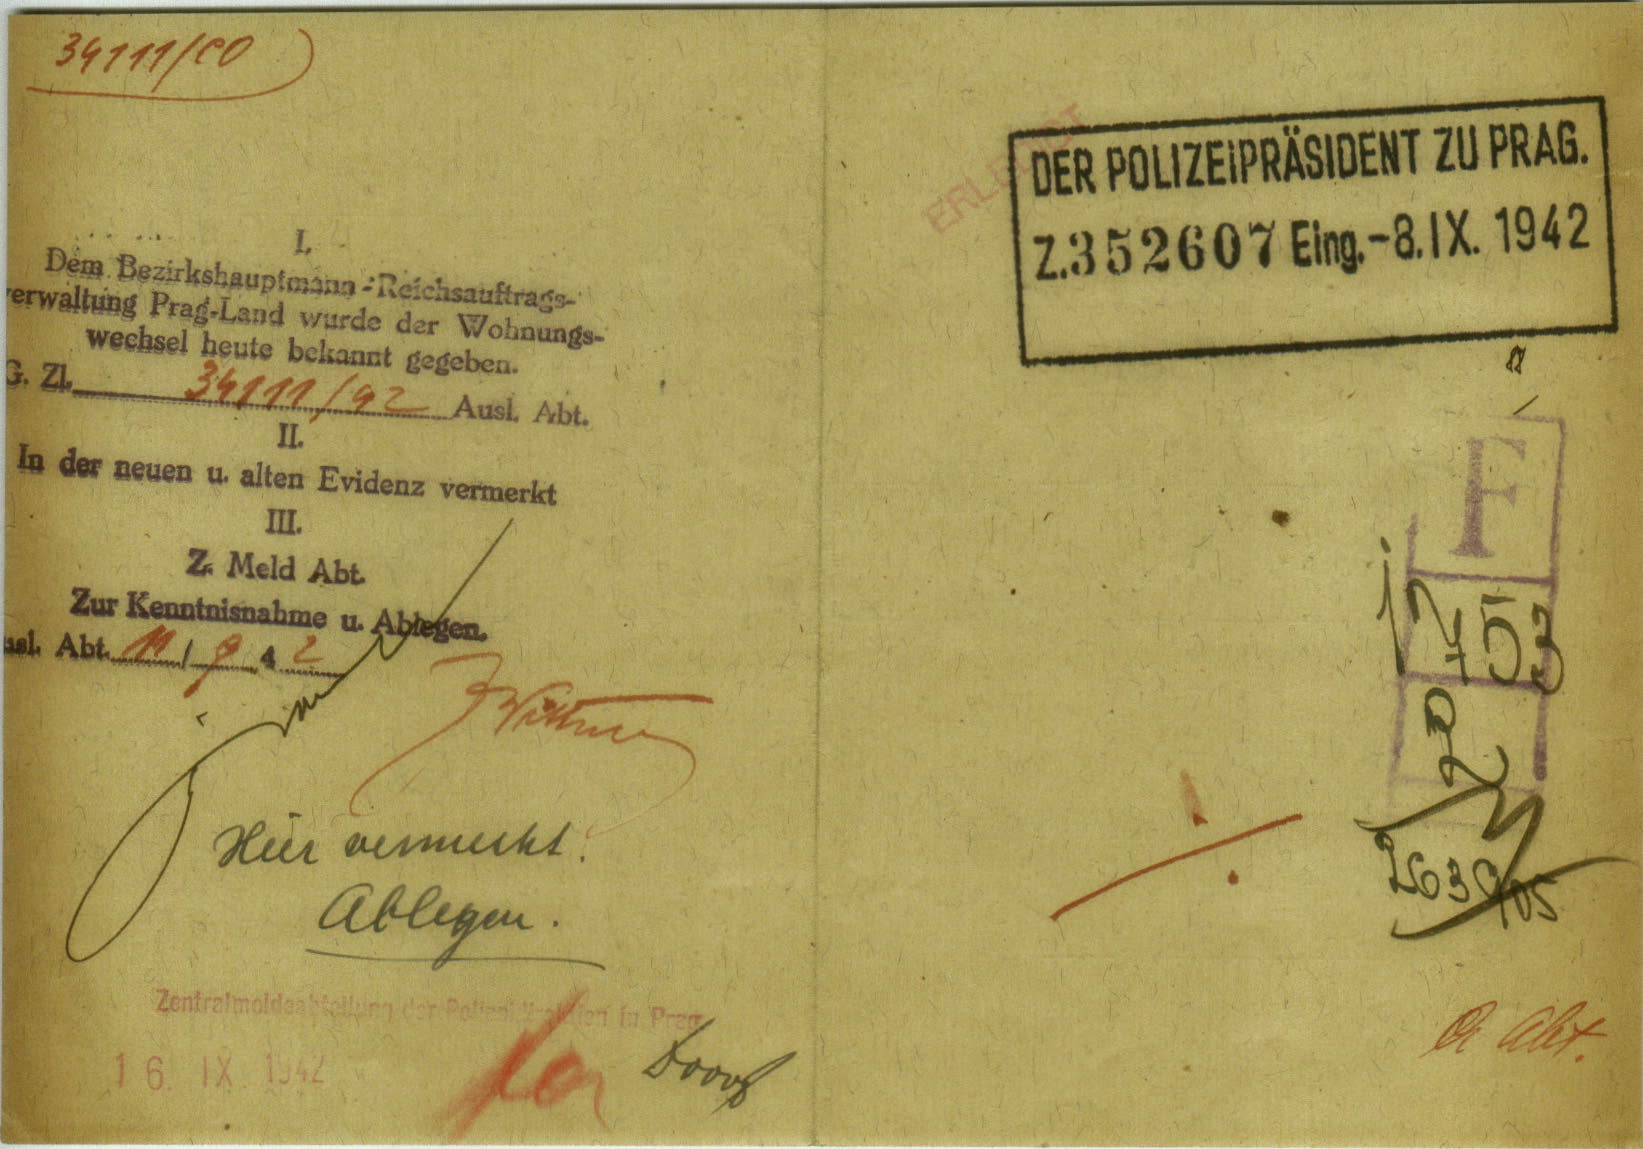 34111/
I.
Dem Bezirkshauptmann - Reichsauftrags-
verwaltung Prag-Land wurde der Wohnungs-
wechsel heute bekannt gegeben.
G. Zl. 34111/42 Ausl. Abt.
II.
In der neuen u. alten Evidenz vermerkt
III.
Z. Meld Abt.
Zur Kenntnisnahme u. Ablegen.
usl. Abt. 11 / 9 42
Hier vermerkt.
Ablegen.
Zentralmeldeabteilung der Polizeidirektion in Prag
16. IX. 1942
ERLEDIGT
DER POLIZEIPRÄSIDENT ZU PRAG.
Z. 352607 Eing. -8. IX. 1942
F
Abt.